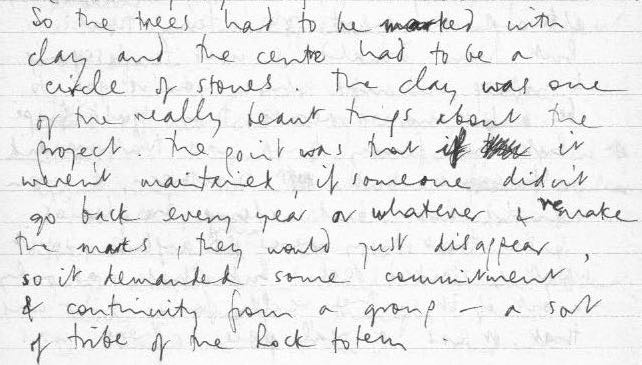 So the trees had to be marked with
clay and the centre had to be a
circle of stones. The clay was one
of the really beaut things about the
project. The point was that if it
weren't maintained, if someone didn't
go back every year or whatever & remake
the marks, they would just disappear,
so it demanded some commitment
& continuity from a group – a sort
of tribe of the Rock totem